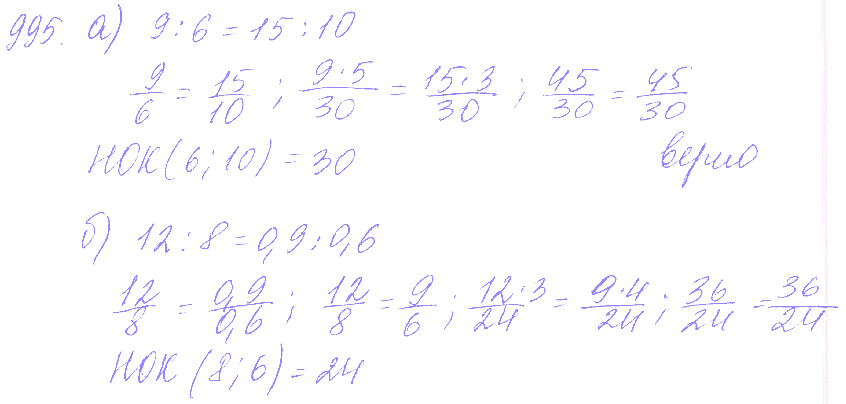 995. а) 9 : 6 = 15 : 10
9/6 = 15/10 ; 9·5/30 = 15·3/30 ; 45/30 = 45/30
НОК (6; 10) = 30 верно
б) 12 : 8 = 0,9 : 0,6
12/8 = 0,9/0,6 ; 12/8 = 9/6 ; 12·3/24 = 9·4/24 ; 36/24 = 36/24
НОК (8; 6) = 24